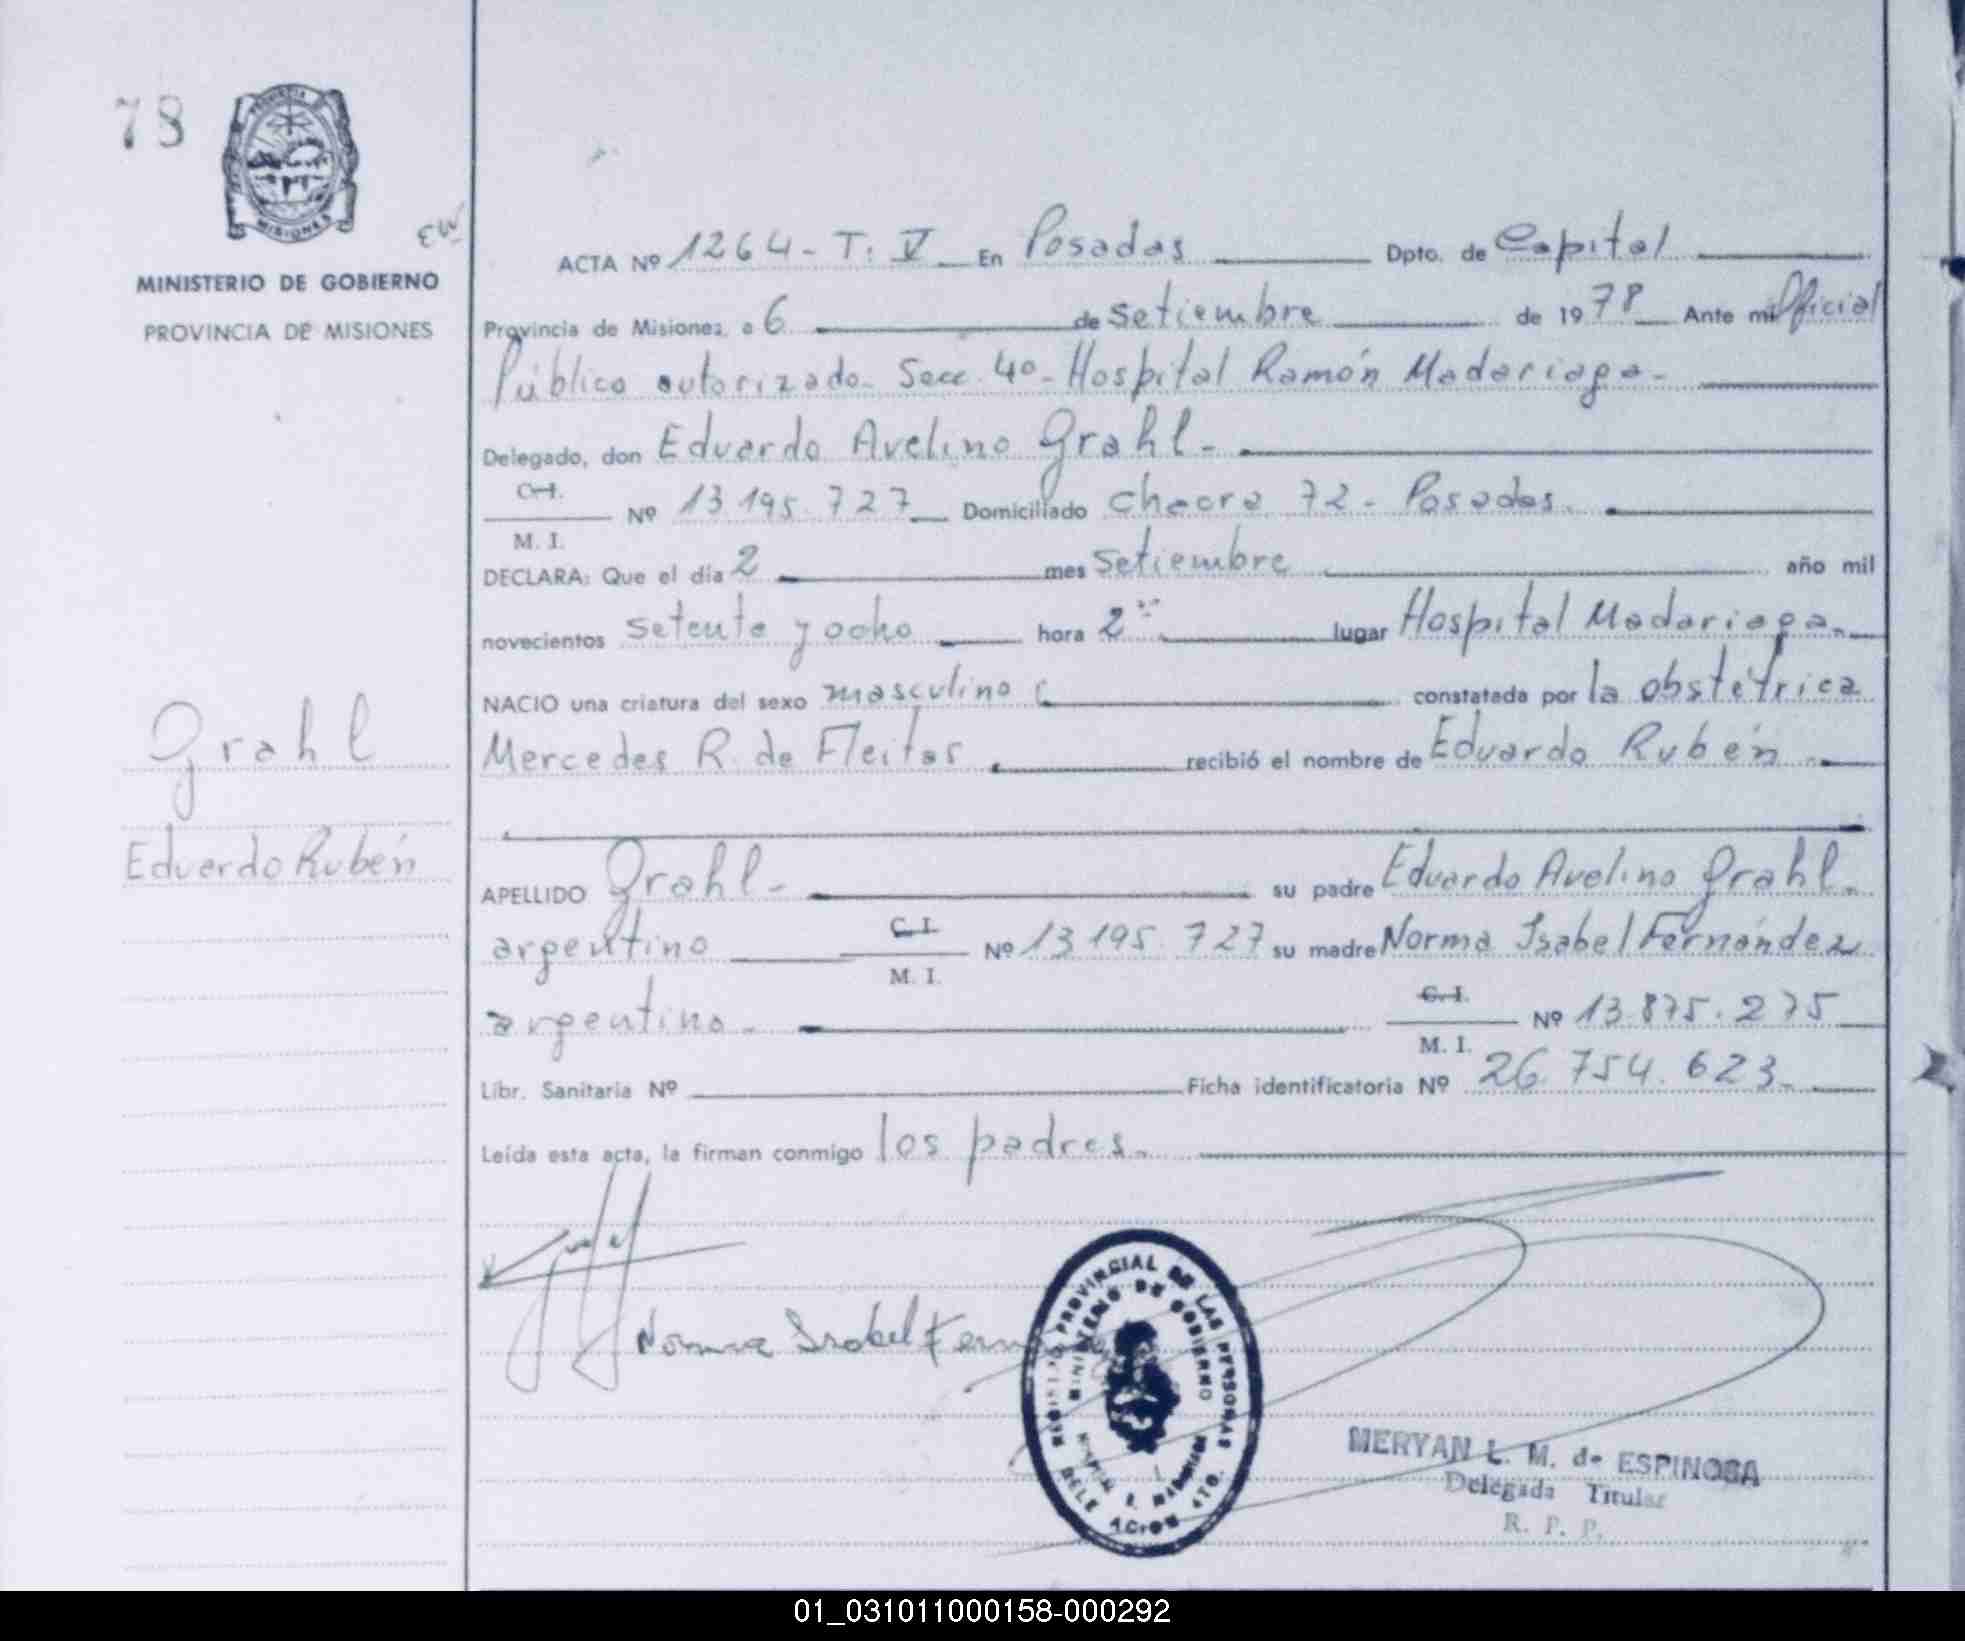 78
PROVINCIA
MISIONES
EW
MINISTERIO DE GOBIERNO
PROVINCIA DE MISIONES
Grahl
Eduardo Rubén
ACTA Nº 1264 - T: V En Posadas Dpto. de Capital
Provincia de Misiones, a 6 de setiembre de 1978 Ante mi Oficial
Público autorizado Secc. 4º - Hospital Ramón Madariaga -
Delegado, don Eduardo Avelino Grahl -
C.I.
Nº 13.195.727 Domiciliado chacra 72 - Posadas.
M. I.
DECLARA: Que el día 2 mes setiembre año mil
novecientos setenta y ocho hora 2 lugar Hospital Madariaga.
NACIO una criatura del sexo masculino constatada por la obstetrica
Mercedes R. de Fleitas recibió el nombre de Eduardo Rubén
APELLIDO Grahl - su padre Eduardo Avelino Grahl.
argentino C.I. Nº 13.195.727 su madre Norma Isabel Fernández
M. I.
argentina. C.I. Nº 13.875.275
M. I.
Libr. Sanitaria Nº Ficha identificatoria Nº 26.754.623
Leída esta acta, la firman conmigo los padres.
Norma Isabel Fern
REGISTRO PROVINCIAL DE LAS PERSONAS
MINISTERIO DE GOBIERNO
DELEGACION 4TO.
MERYAN L. M. de ESPINOSA
Delegada Titular
R. P. P.
01_031011000158-000292